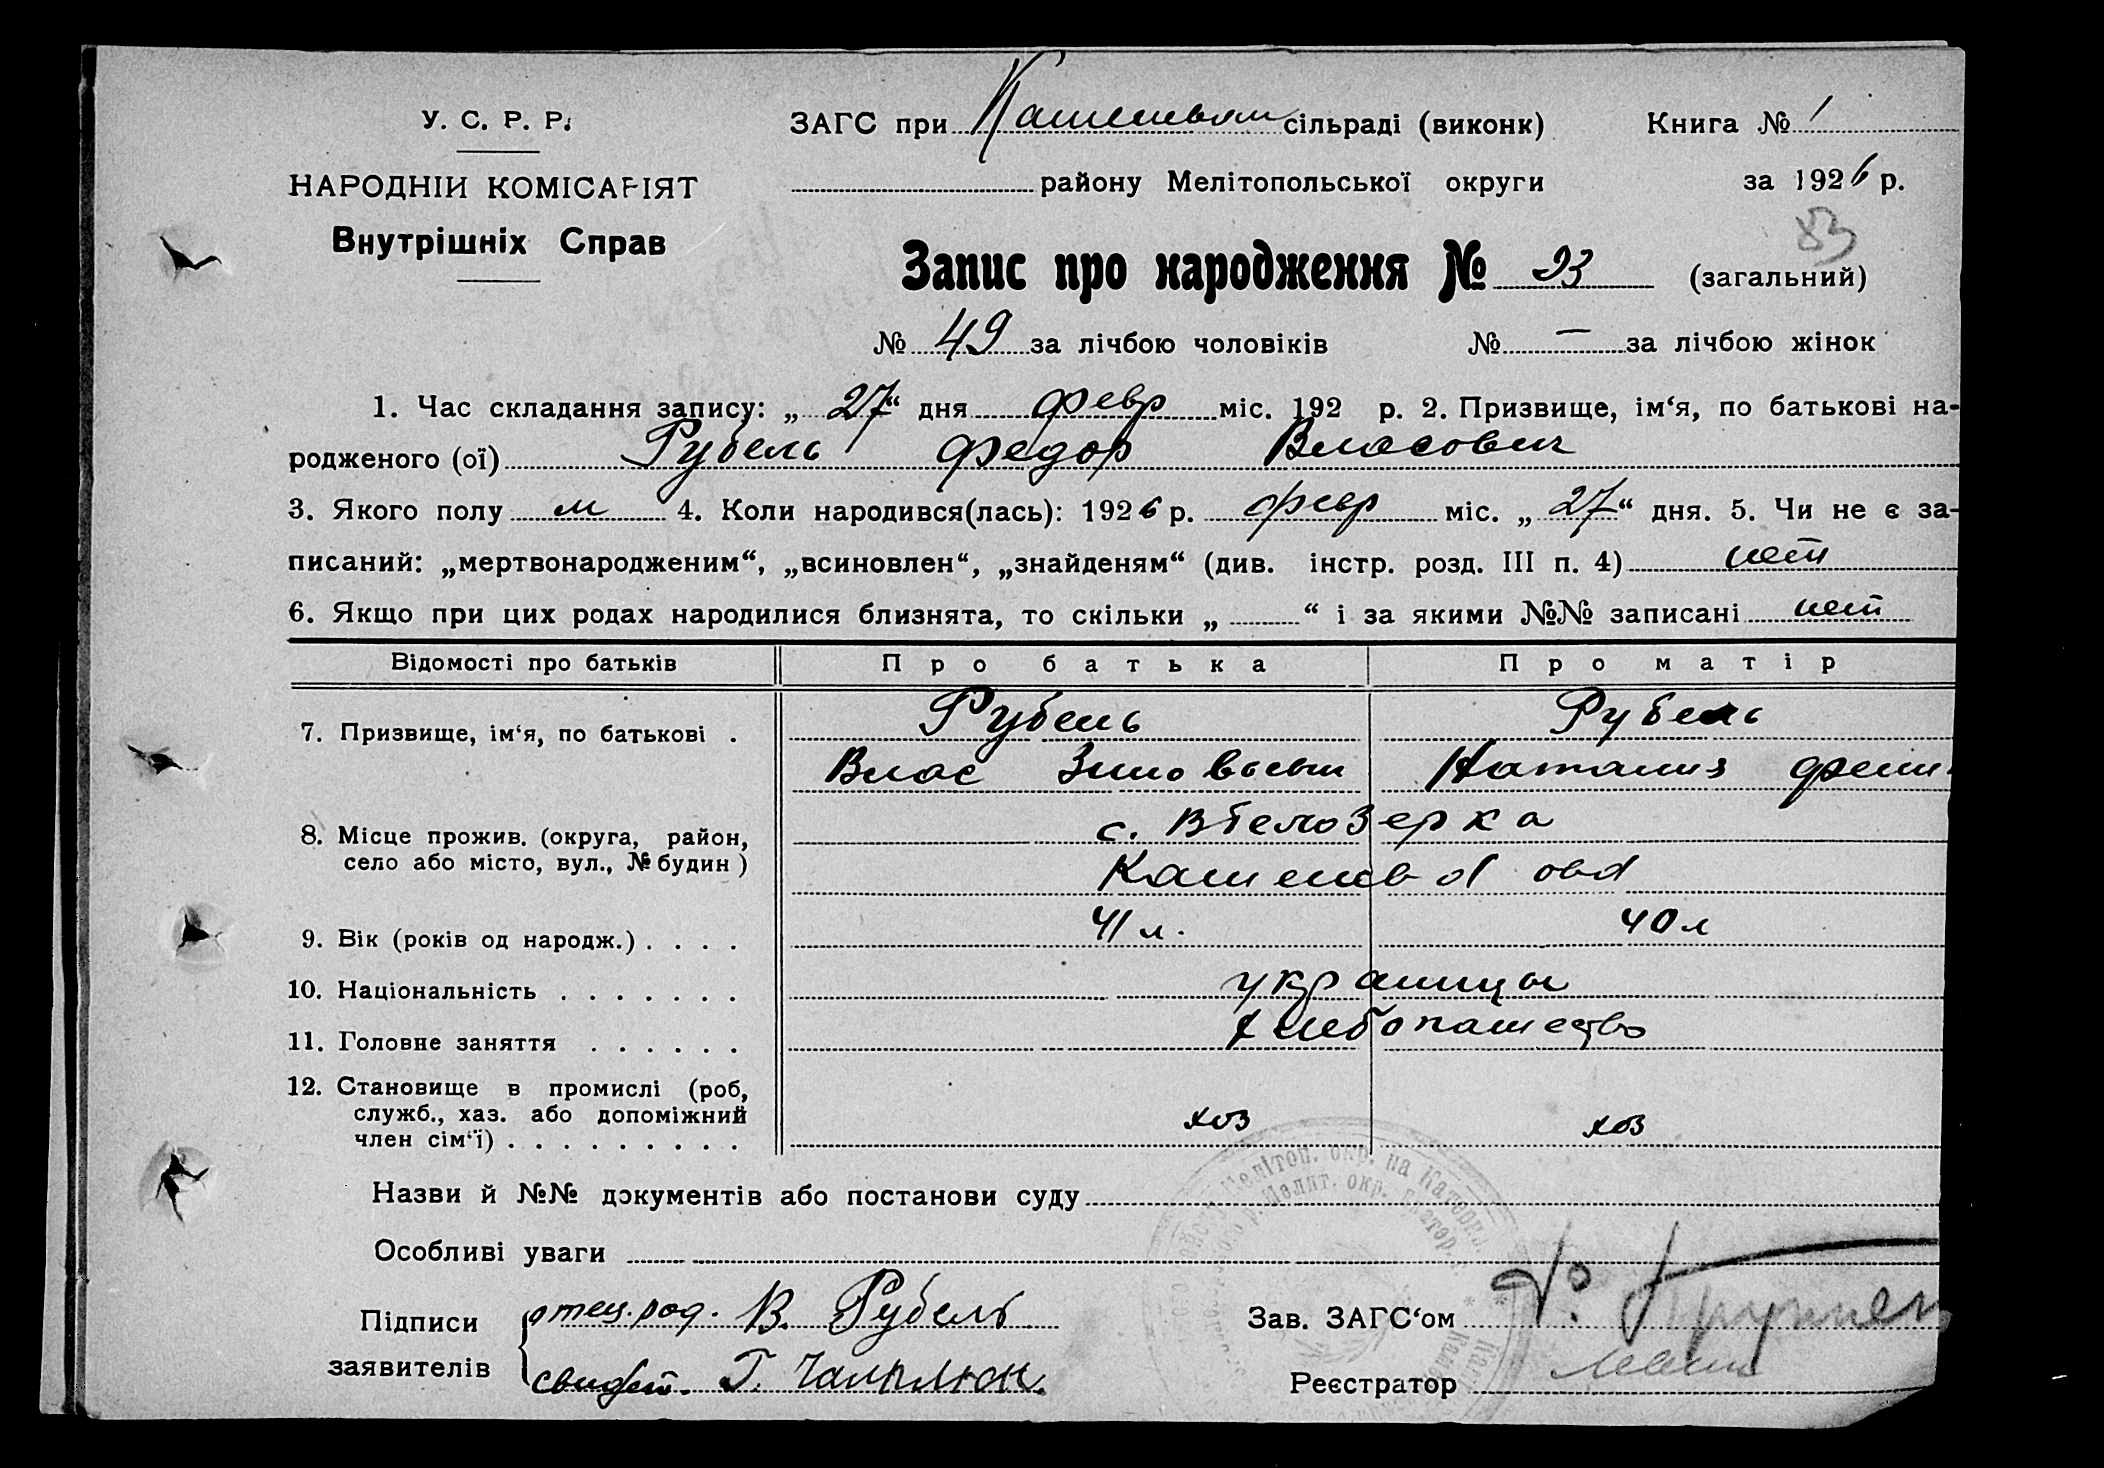 У. С. Р. Р.
НАРОДНІЙ КОМІСАРІЯТ
Внутрішніх Справ
ЗАГС при сільраді (виконк) Книга № 1
району Мелітопольської округи за 1926 р.
83
Запис про народження № 93 (загальний)
№ 49 за лічбою чоловіків № — за лічбою жінок
1. Час складання запису: „27“ дня февр міс. 192 р. 2. Призвище, ім‘я, по батькові на-
родженого (ої) Рубель Федор Власович
3. Якого полу м 4. Коли народився(лась): 1926 р. февр міс. „27“ дня. 5. Чи не є за-
писаний: „мертвонародженим“, „всиновлен“, „знайденям“ (див. інстр. розд. III п. 4) нет
6. Якщо при цих родах народилися близнята, то скільки „ “ і за якими №№ записані нет
Відомості про батьків Про батька Про матір
7. Призвище, ім‘я, по батькові . Рубель Рубель
Влас Зиновьевич Наталия
8. Місце прожив. (округа, район, с. Белозерка
село або місто, вул., № будин)
9. Вік (років од народж.) . . . . 41 л. 40 л
10. Національність . . . . . . . украинцы
11. Головне заняття . . . . . . хлебопашество
12. Становище в промислі (роб,
служб., хаз. або допоміжний хоз хоз
член сім‘ї) . . . . . . . . .
Назви й №№ документів або постанови суду
Особливі уваги
Підписи отец. род. В. Рубель Зав. ЗАГС‘ом
заявителів свидет. Г. Реєстратор